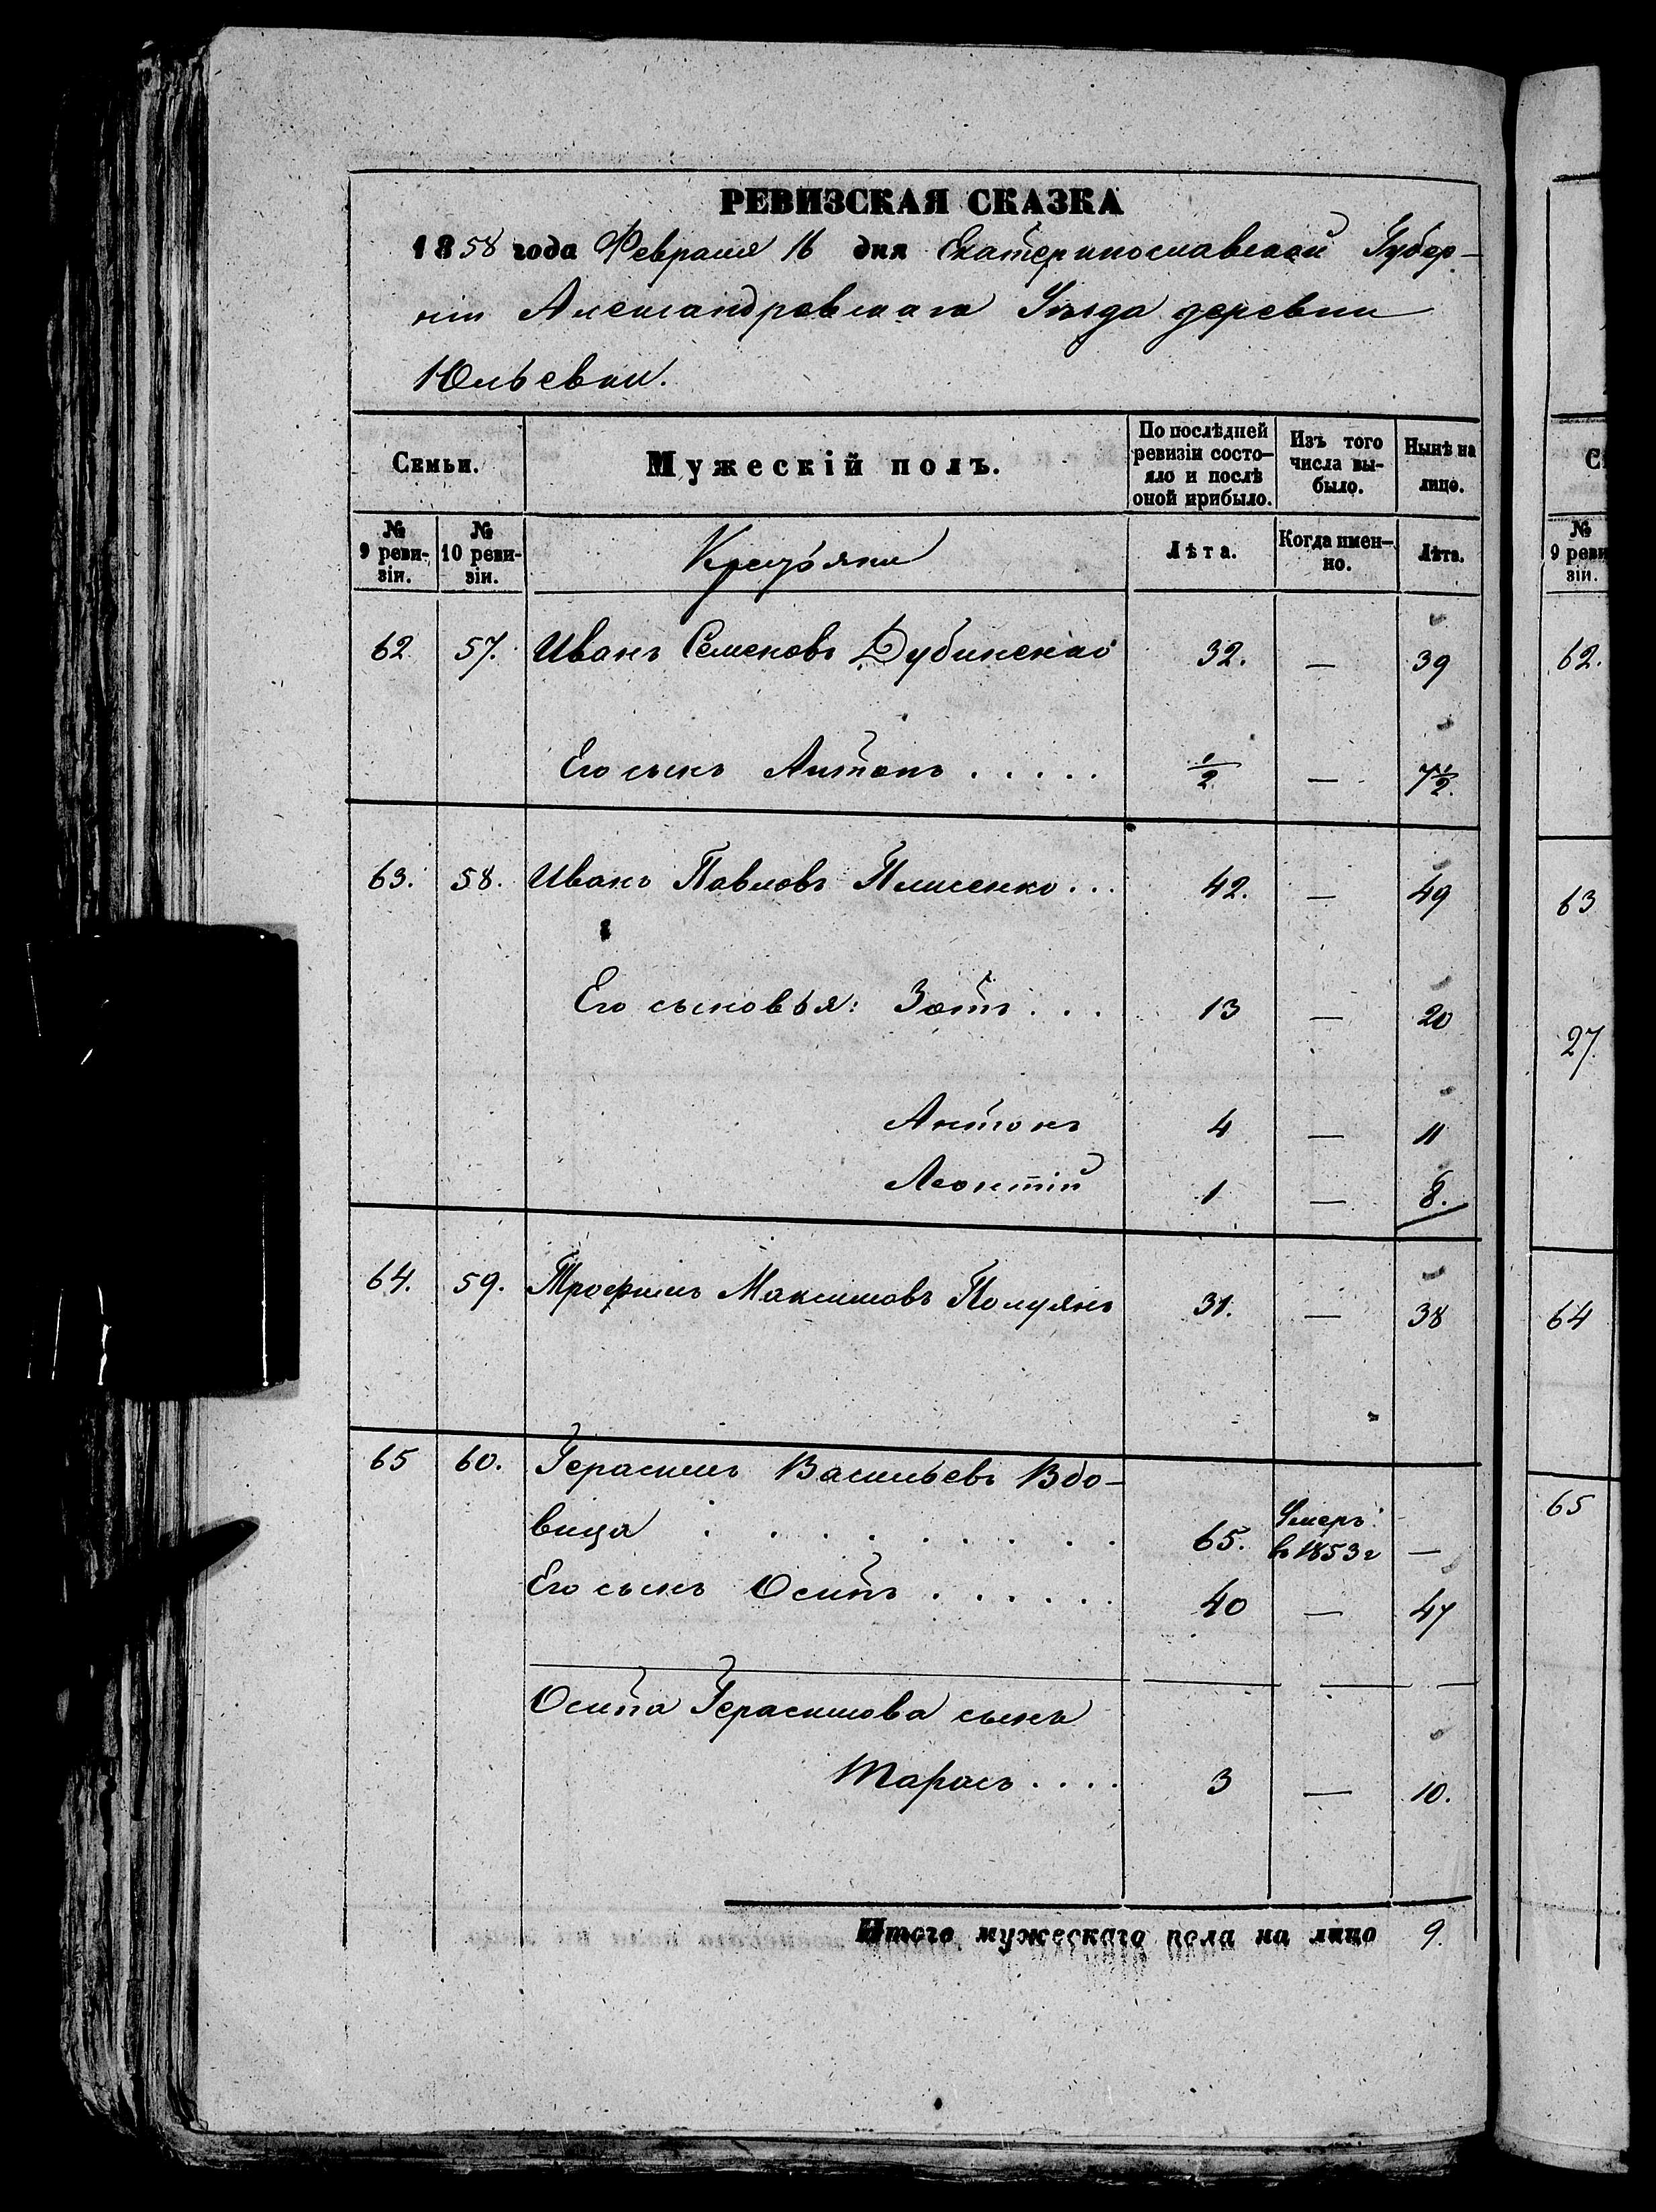 РЕВИЗСКАЯ СКАЗКА
1858 года Февраля 16 дня Екатеринославской Губер-
ніи Александровскаго Уѣзда деревни
Юльевки.
Семьи. Мужескій полъ. По послѣдней ревизіи состо-яло и послѣ оной прибыло. Изъ того числа вы-было. Нынѣ на лицо.
№ 9 реви-зіи. № 10 реви-зіи. Крестьяни Лѣта. Когда имен-но. Лѣта.
62 57. Иванъ Семеновъ Дубинскій 32. — 39
Его сынъ Антонъ . . . . . 1/2 — 7 1/2.
63. 58. Иванъ Павловъ . . . 42. — 49
Его сыновья: Зотъ . . . 13 — 20
Антонъ 4 — 11
Леонтій 1 — 8.
64. 59. Трофимъ Максимовъ Полуянъ 31. — 38
65 60. Герасимъ Васильевъ Вдо-
вица . . . . . . . . 65. Умеръ въ 1853 г —
Его сынъ Осипъ . . . . . . 40 — 47
Осипа Герасимова сынъ
Тарасъ . . . . 3 — 10.
Итого мужескаго пола на лицо 9.
С
№ 9 реви зіи.
62.
63
27.
64
65